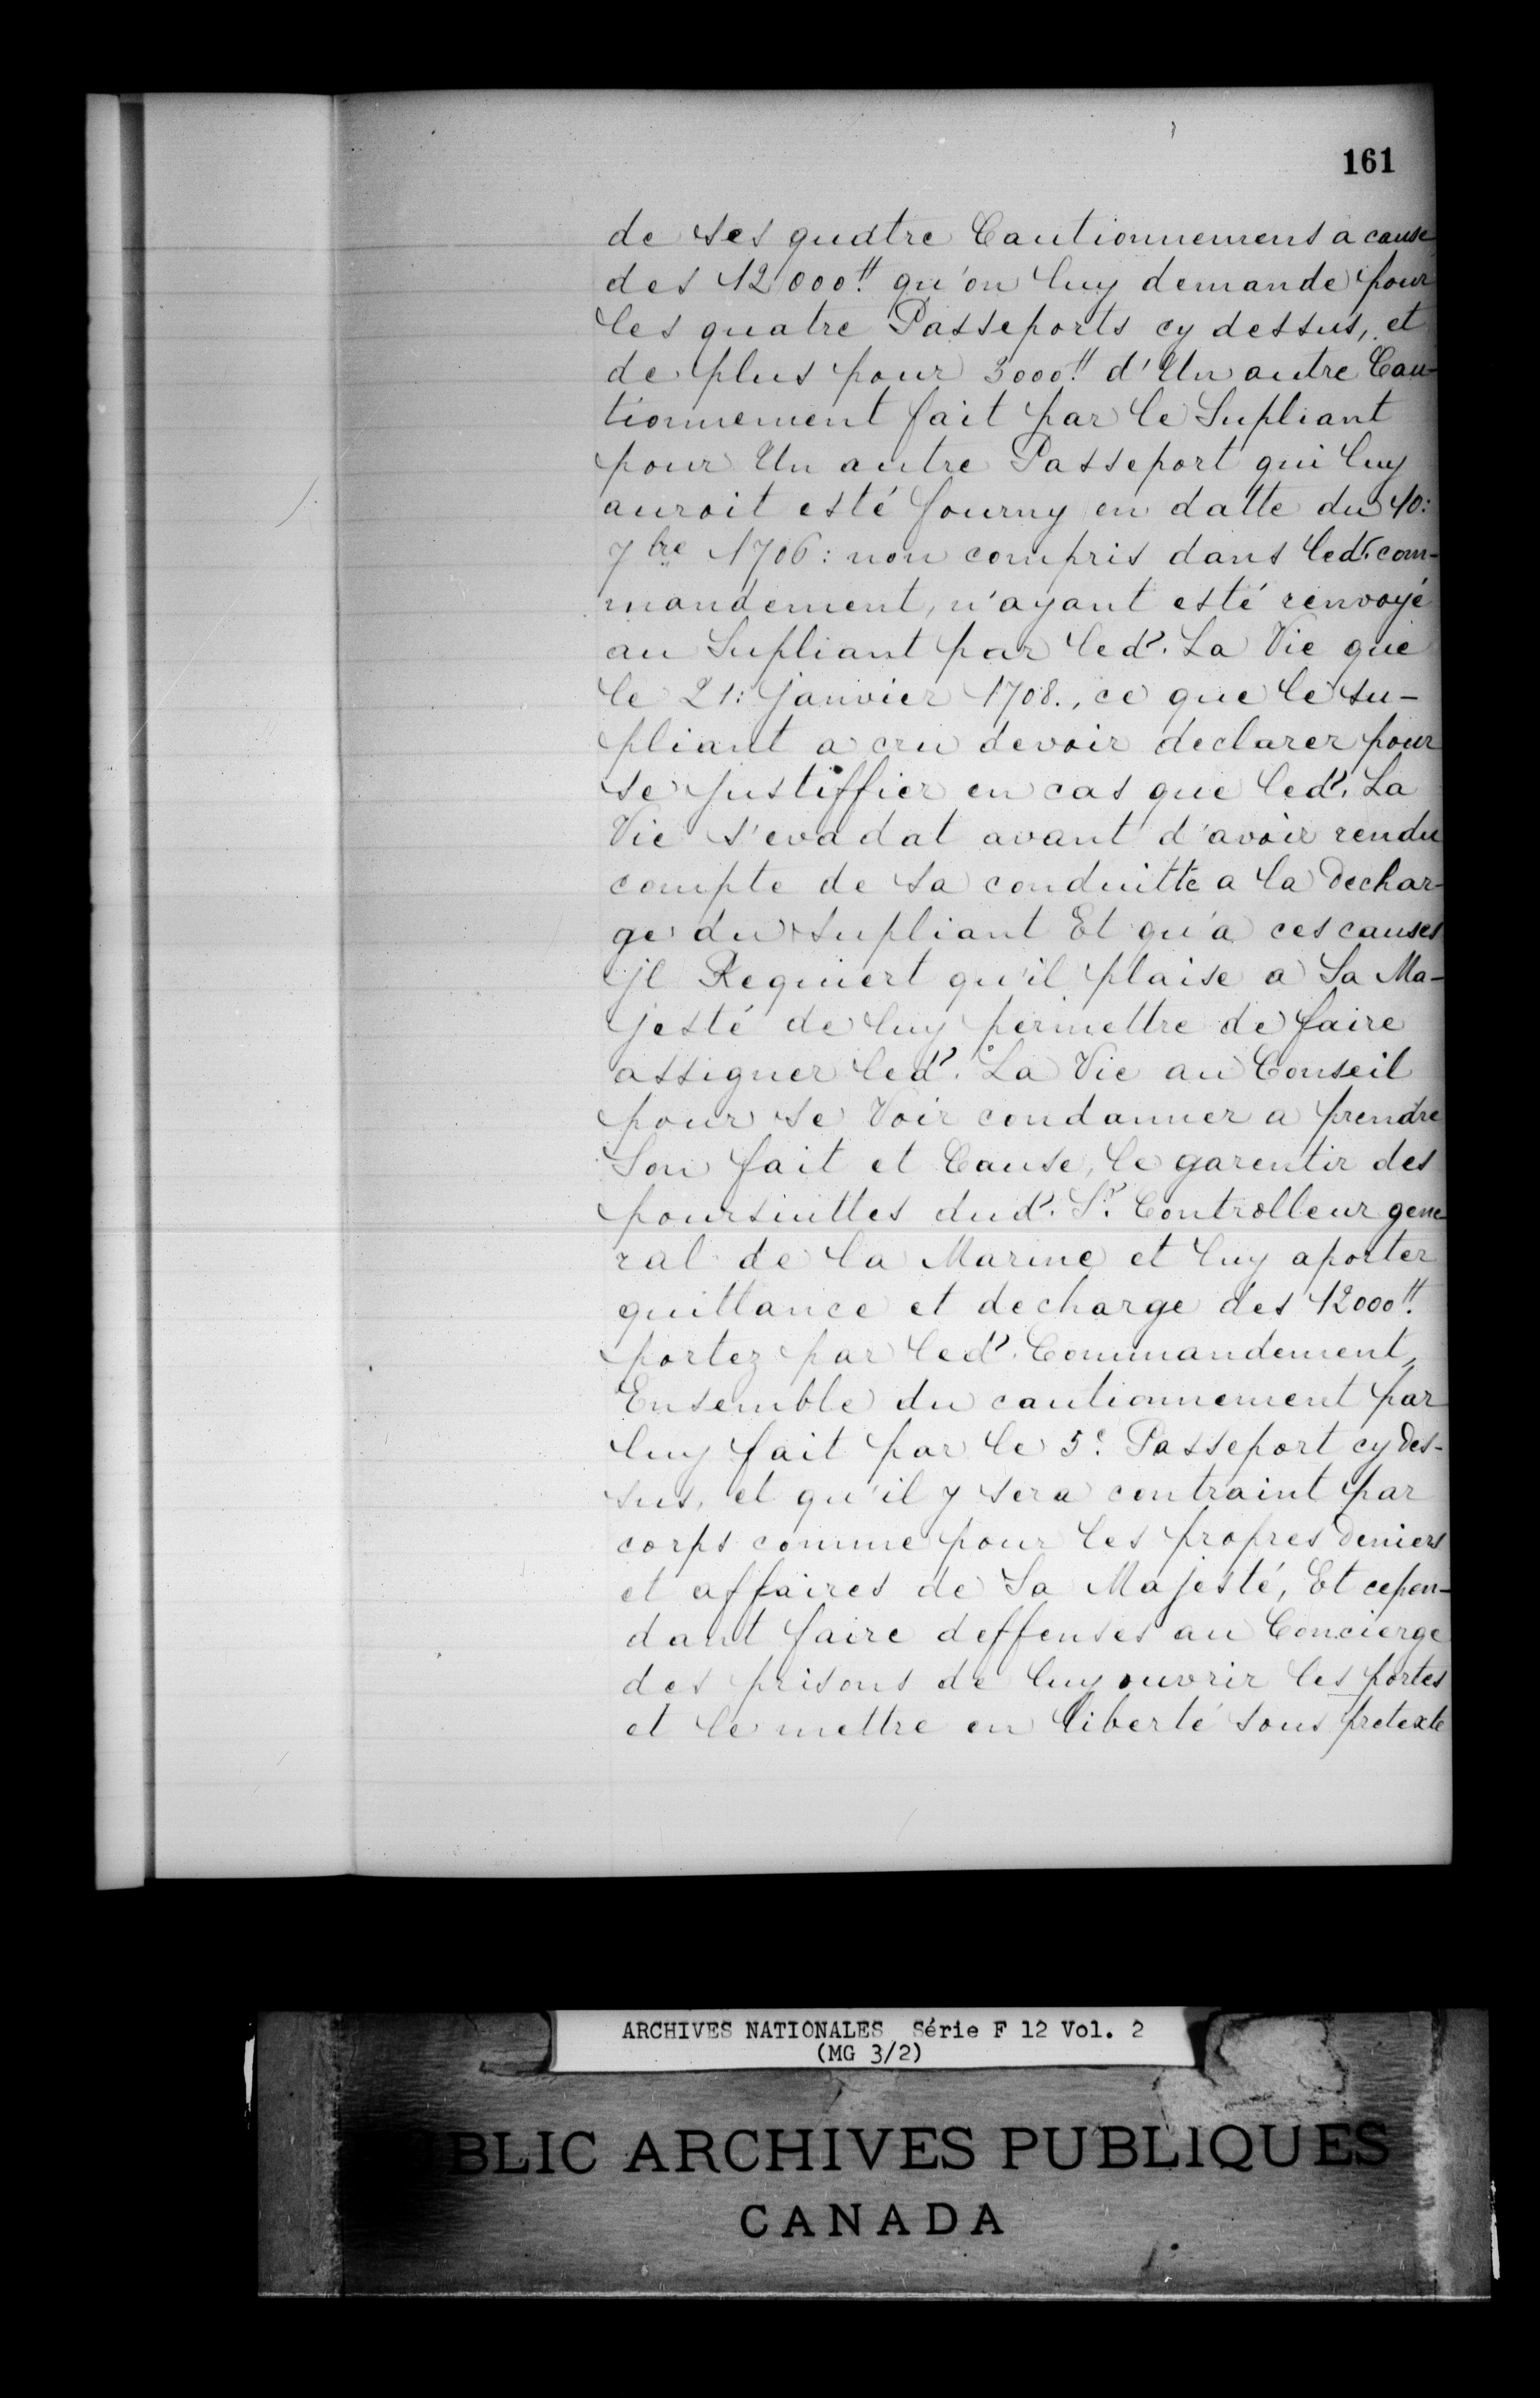 161
de ses quatre Cautionnemens a cause
des 12000.tt qu'on luy demande pour
les quatre Passeports cy dessus, et
de plus pour 3000.tt d'Un autre Cau-
tionnement fait par le Supliant
pour Un autre Passeport qui luy
auroit esté fourny en datte du 10:
7bre 1706: non compris dans led. com-
mandement, n'ayant esté renvoyé
au Supliant par led. La Vie que
le 21: Janvier 1708., ce que le su-
pliant a cru devoir declarer pour
se justiffier en cas que led. La
Vie s'evadat avant d'avoir rendu
compte de sa conduitte a la dechar-
ge du supliant Et qu'a ces causes
jl Requiert qu'il plaise a Sa Ma-
jesté de luy permettre de faire
assigner led. La Vie au Conseil
pour se Voir condanner a prendre
Son fait et Cause, le garentir des
poursuittes dud. Sr. Controlleur gene
ral de la Marine et luy aporter
quittance et decharge des 12000tt.
portez par led. Commandement,
Ensemble du cautionnement par
luy fait par le 5e. Passeport cy des-
sus, et qu'il y sera contraint par
corps comme pour les propres deniers
et affaires de Sa Majesté, Et cepen-
dant faire deffenses au Concierge
des prisons de luy ouvrir les portes
et le mettre en liberté sous pretexte
ARCHIVES NATIONALES Série F 12 Vol. 2
(MG 3/2)
BLIC ARCHIVES PUBLIQUES
CANADA